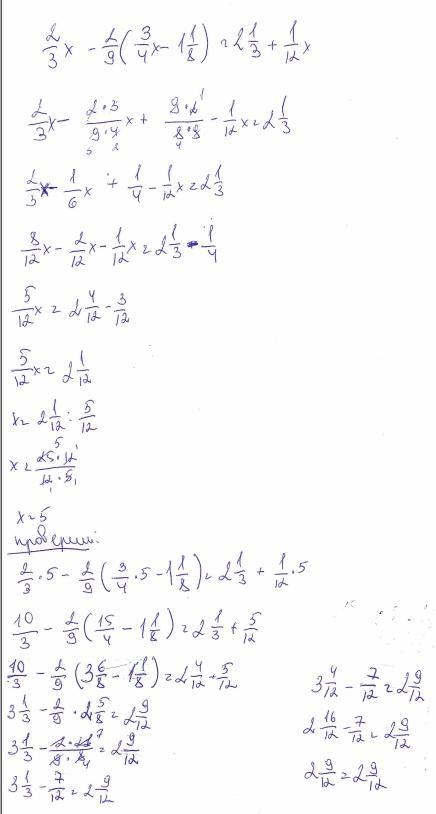 2/3 x - 2/9 ( 3/4 x - 1 1/8 ) = 2 1/3 + 1/12 x
2/3 x - 2·3/9·4 x + 9·2/8·9 - 1/12 x = 2 1/3
2/3 x - 1/6 x + 1/4 - 1/12 x = 2 1/3
8/12 x - 2/12 x - 1/12 x = 2 1/3 - 1/4
5/12 x = 2 4/12 - 3/12
5/12 x = 2 1/12
x = 2 1/12 : 5/12
x = 25·12/12·5
x = 5
проверим:
2/3 · 5 - 2/9 ( 3/4 · 5 - 1 1/8 ) = 2 1/3 + 1/12 · 5
10/3 - 2/9 ( 15/4 - 1 1/8 ) = 2 1/3 + 5/12
10/3 - 2/9 ( 3 6/8 - 1 1/8 ) = 2 4/12 + 5/12
3 1/3 - 2/9 · 2 5/8 = 2 9/12
3 1/3 - 2·21/9·8 = 2 9/12
3 1/3 - 7/12 = 2 9/12
3 4/12 - 7/12 = 2 9/12
2 16/12 - 7/12 = 2 9/12
2 9/12 = 2 9/12